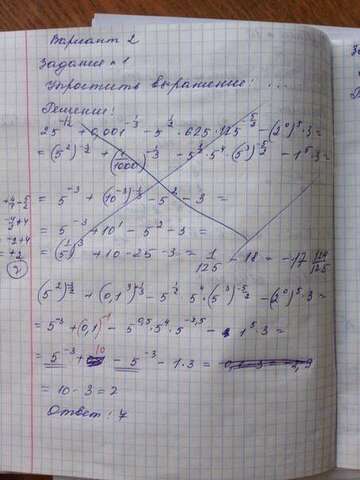 Вариант 2
Задание №1
Упростить выражение: ...
Решение:
25^{-1/2} + 0,001^{-1/3} - 5^{1/2} · 625 · 125^{5/2} - (2^0)^5 · 3 =
= (5^2)^{-1/2} + (1/1000)^{-1/3} - 5^{1/2} · 5^4 · (5^3)^{-5/2} - 1^5 · 3 =
= 5^{-3} + (10^{-3})^{-1/3} - 5^2 - 3 =
= 5^{-3} + 10^1 - 5^2 - 3 =
= (1/5)^3 + 10 - 25 - 3 = 1/125 - 18 = -17 124/125
(5^2)^{-1/2} + (0,1^3)^{-1/3} - 5^{1/2} 5^4 (5^3)^{-5/2} - (2^0)^5 · 3 =
= 5^{-3} + (0,1)^{-1} - 5^{0,5} · 5^4 · 5^{-3,5} - 1^5 · 3 =
= 5^{-3} + 10 - 5^{-3} - 1 · 3 =
= 10 - 3 = 2
Ответ: 7